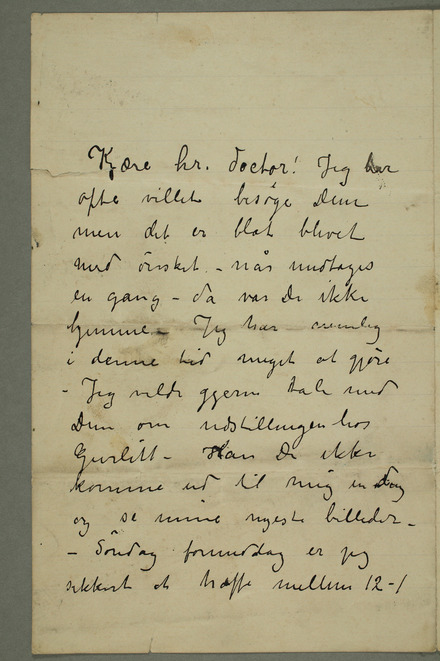 Kjære hr. doctor! Jeg har
ofte villet besøge Dem
men det er blot blevet
med ønsket – når undtages
en gang – da var De ikke
hjemme – Jeg har nemlig
i denne tid meget at gjøre
– Jeg vilde gjerne tale med
Dem om udstillingen hos
Gurlitt – Kan De ikke
komme ud til mig en dag
og se mine nyeste billeder –
– Søndag formiddag er jeg
sikkert at træffe mellem 12-1